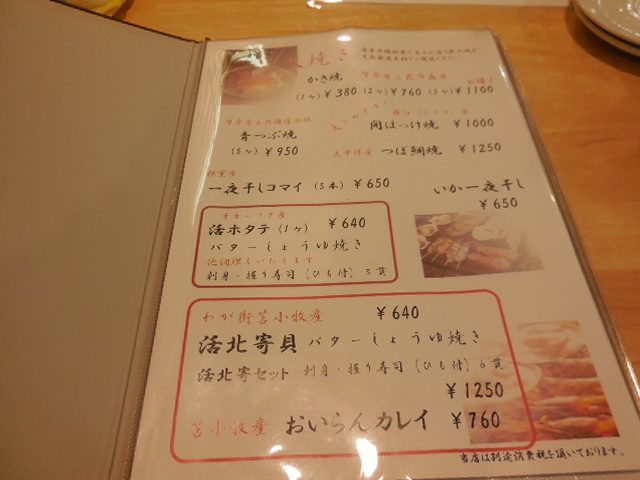 焼き
かき焼 厚岸産と昆布森産 お得!
(1ヶ)¥380 (2ヶ)¥760 (3ヶ)¥1100
青つぶ焼
(5ヶ)¥950
開ほっけ焼 ¥1000
太平洋産 つぼ鯛焼 ¥1250
根室産
一夜干しコマイ (5本) ¥650
いか一夜干し
¥650
オホーツク産
活ホタテ(1ヶ) ¥640
バターしょうゆ焼き
他調理もいたします
刺身・握り寿司(ひも付)3貫
わが街苫小牧産 ¥640
活北寄貝 バターしょうゆ焼き
活北寄セット 刺身・握り寿司(ひも付)6貫
¥1250
苫小牧産 おいらんカレイ ¥760
当店は別途消費税を頂いております。